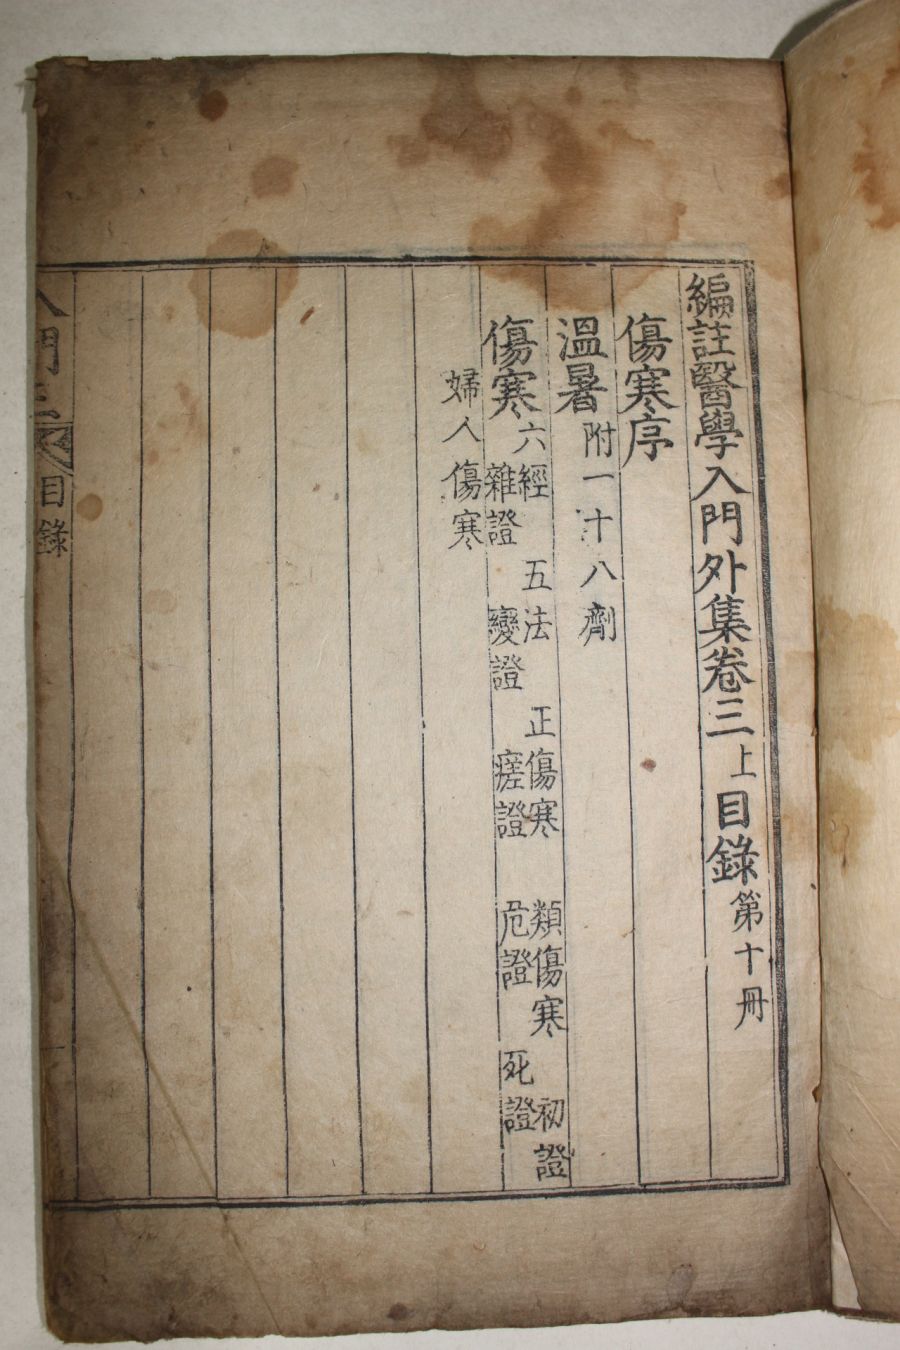 編註醫學入門外集卷三上目錄第十冊
傷寒序
溫暑附一十八劑
傷寒六經 五法 正傷寒 類傷寒 初證
雜證 變證 瘥證 危證 死證
婦人傷寒
入門三 目錄